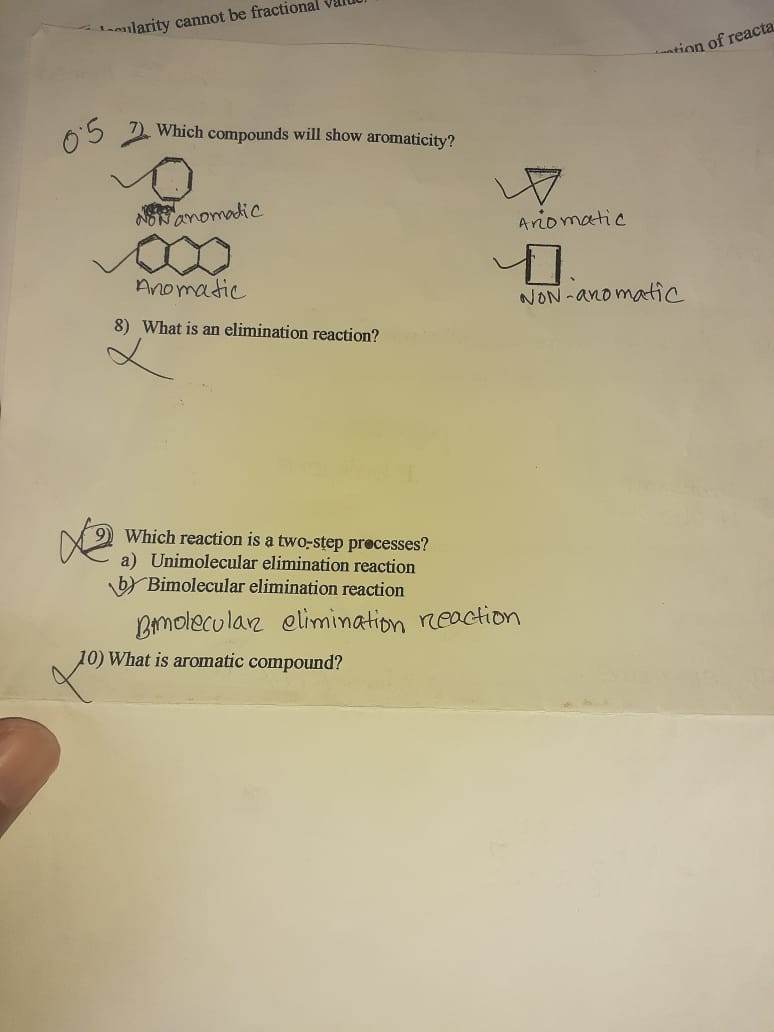 cannot be fractional
of
0.5 7) Which compounds will show aromaticity?
NON anomadic
Ariomatic
Anomadic
NON-anomatic
8) What is an elimination reaction?
9) Which reaction is a two-step processes?
a) Unimolecular elimination reaction
b) Bimolecular elimination reaction
Bimolecular elimination reaction
10) What is aromatic compound?